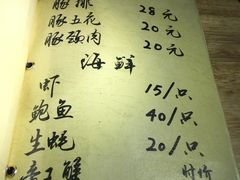 豚排 28元
豚五花 20元
豚颈肉 20元
海鲜
虾 15/只
鲍鱼 40/只
生蚝 20/只
帝王蟹 时价